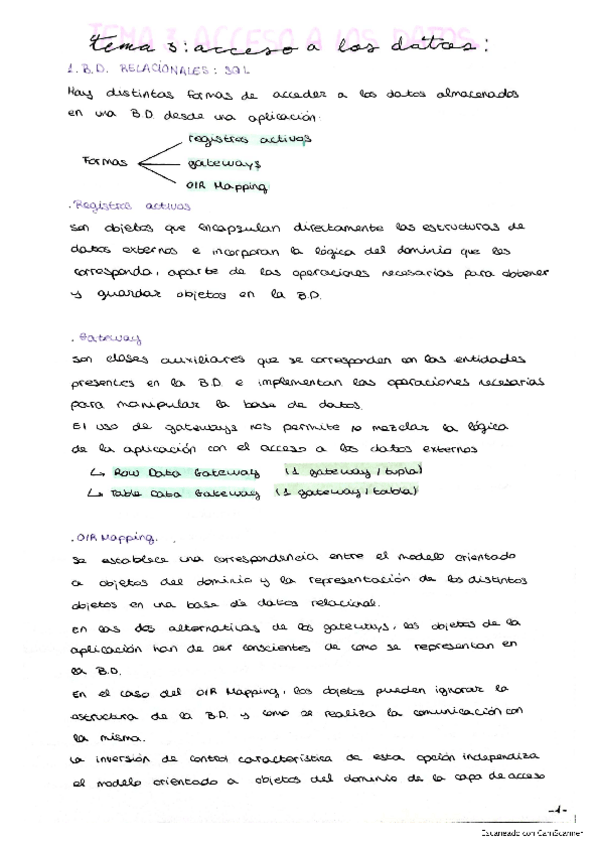 TEMA 3: ACCESO A LOS DATOS
tema 3: acceso a los datos:
1. B.D. RELACIONALES: SQL
Hay distintas formas de acceder a los datos almacenados
en una B.D. desde una aplicación.
registros activos
Formas
gateways
O/R Mapping
. Registros activos
son objetos que encapsulan directamente las estructuras de
datos externos e incorporan la lógica del dominio que les
corresponda, aparte de las operaciones necesarias para obtener
y guardar objetos en la B.D.
. Gateway
son clases auxiliares que se corresponden con las entidades
presentes en la B.D. e implementan las operaciones necesarias
para manipular la base de datos.
El uso de gateways nos permite no mezclar la lógica
de la aplicación con el acceso a los datos externos
↳ Row Data Gateway (1 gateway / tupla)
↳ Table Data Gateway (1 gateway / tabla)
. O/R Mapping.
se establece una correspondencia entre el modelo orientado
a objetos del dominio y la representación de los distintos
objetos en una base de datos relacional.
En las dos alternativas de los gateways, los objetos de la
aplicación han de ser conscientes de como se representan en
la B.D.
En el caso del O/R Mapping, los objetos pueden ignorar la
estructura de la B.D. y como se realiza la comunicación con
la misma.
La inversión de control característica de esta opción independiza
el modelo orientado a objetos del dominio de la capa de acceso
-1-
Escaneado con CamScanner